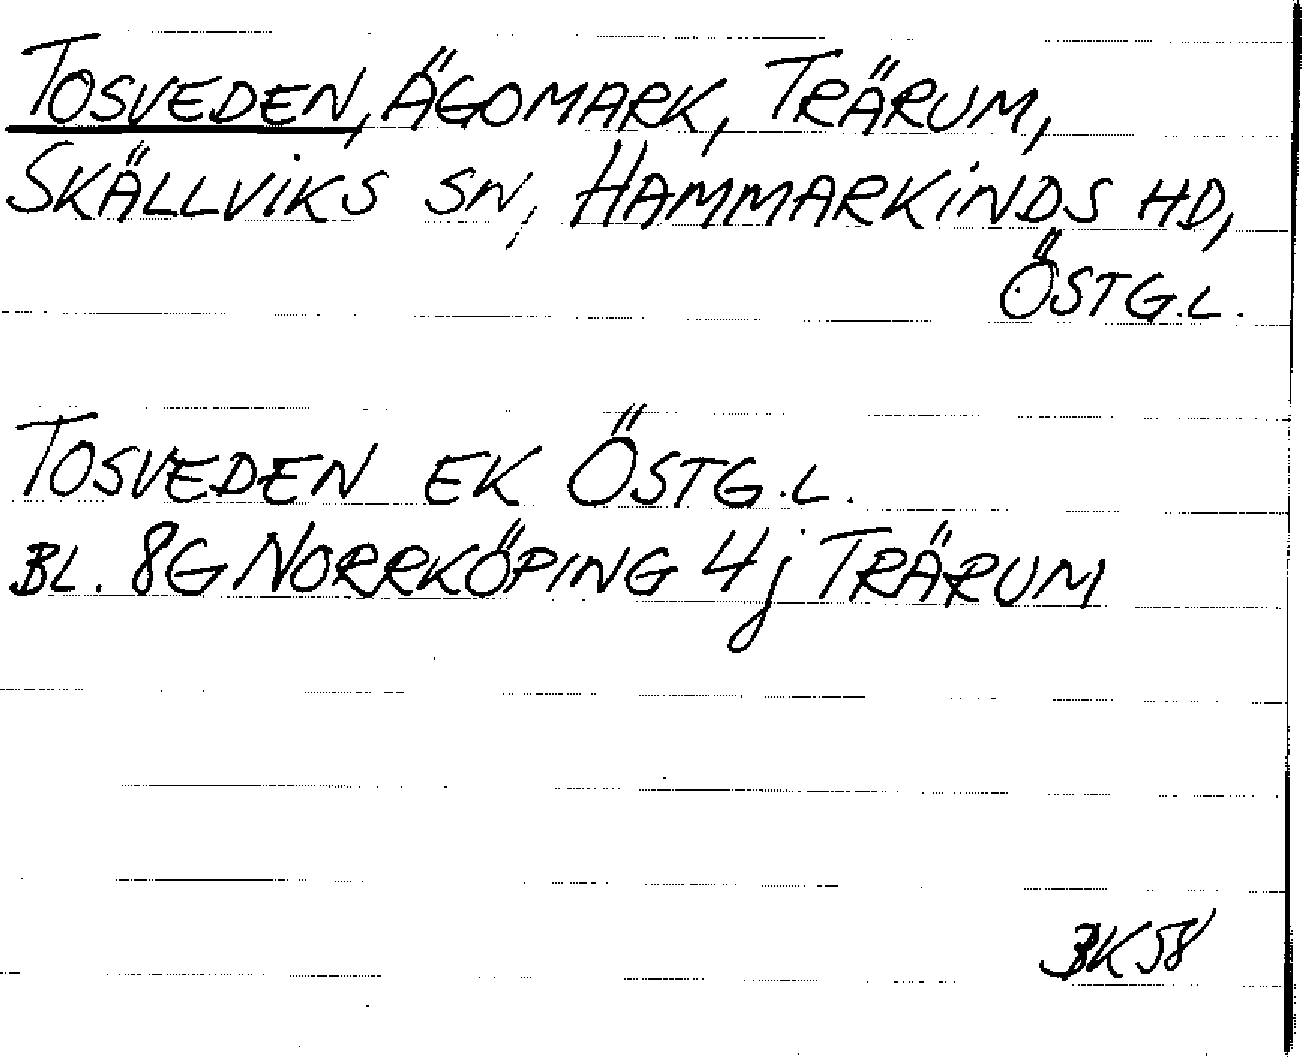 TOSVEDEN, ÄGOMARK, TRÄRUM,
SKÄLLVIKS SN, HAMMARKINDS HD,
ÖSTG.L.
TOSVEDEN EK ÖSTG.L.
BL. 8G NORRKÖPING 4j TRÄRUM
BK 58